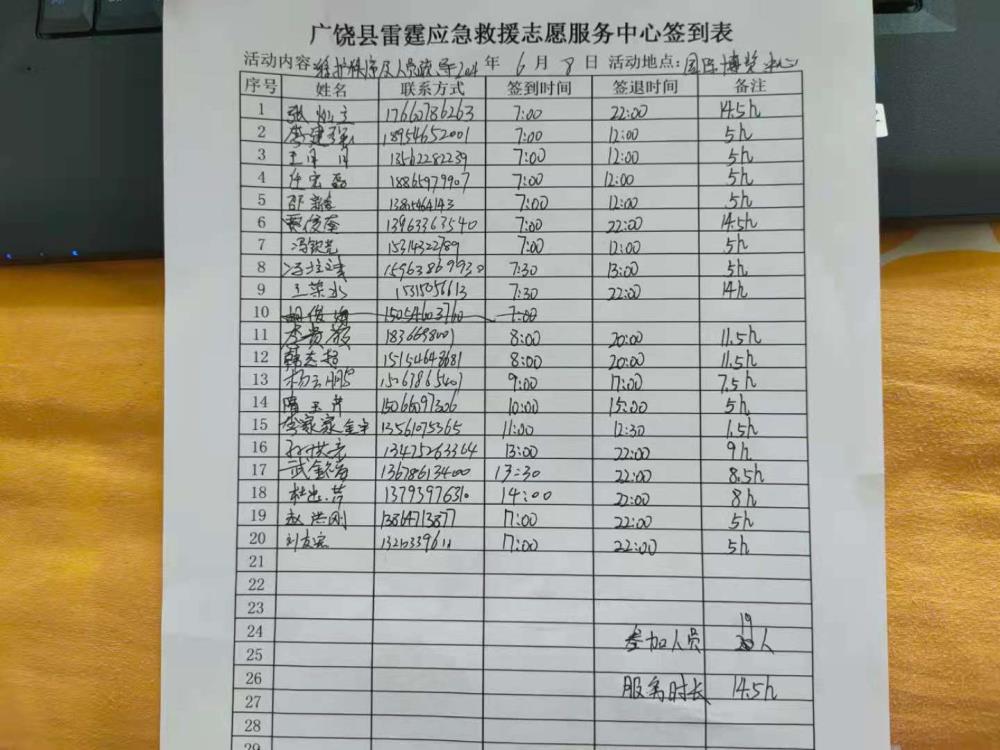 广饶县雷霆应急救援志愿服务中心签到表
活动内容:维护秩序及人员疏导 年 6 月 8 日 活动地点:国际博览中心
序号 姓名 联系方式 签到时间 签退时间 备注
1 张 17660786263 7:00 22:00 14.5h
2 李建强 18954652001 7:00 12:00 5h
3 13562282239 7:00 12:00 5h
4 任宏磊 18865979907 7:00 12:00 5h
5 邵 13805464143 7:00 12:00 5h
6 贾俊奎 13963363540 7:00 22:00 14.5h
7 冯钦光 15314322789 7:00 12:00 5h
8 冯 15963869930 7:30 13:00 5h
9 王荣水 15315056613 7:30 22:00 14h
10 胡俊海 15054603760 7:00
11 李贵 8:00 20:00 11.5h
12 韩志超 15154648681 8:00 20:00 11.5h
13 杨云鹏 15067865407 9:00 17:00 7.5h
14 隋玉芹 15066097306 10:00 15:00 5h
15 李家家 13561075365 11:00 12:30 1.5h
16 孙洪亮 13475263364 13:00 22:00 9h
17 武 13678613400 13:30 22:00 8.5h
18 杜 13793976310 14:00 22:00 8h
19 赵洪刚 13864713877 17:00 22:00 5h
20 刘友宏 17:00 22:00 5h
21
22
23
24 参加人员 19人
25
26 服务时长 14.5h
27
28
29